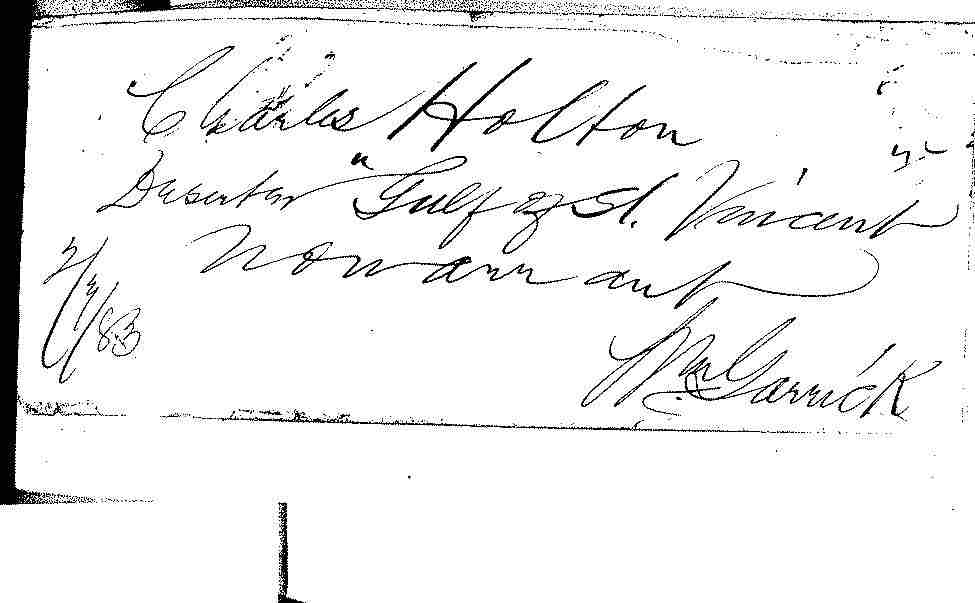 Charles Holton
Deserter "Gulf of St. Vincent
No warrant
2/4/83
Wm. Garrick